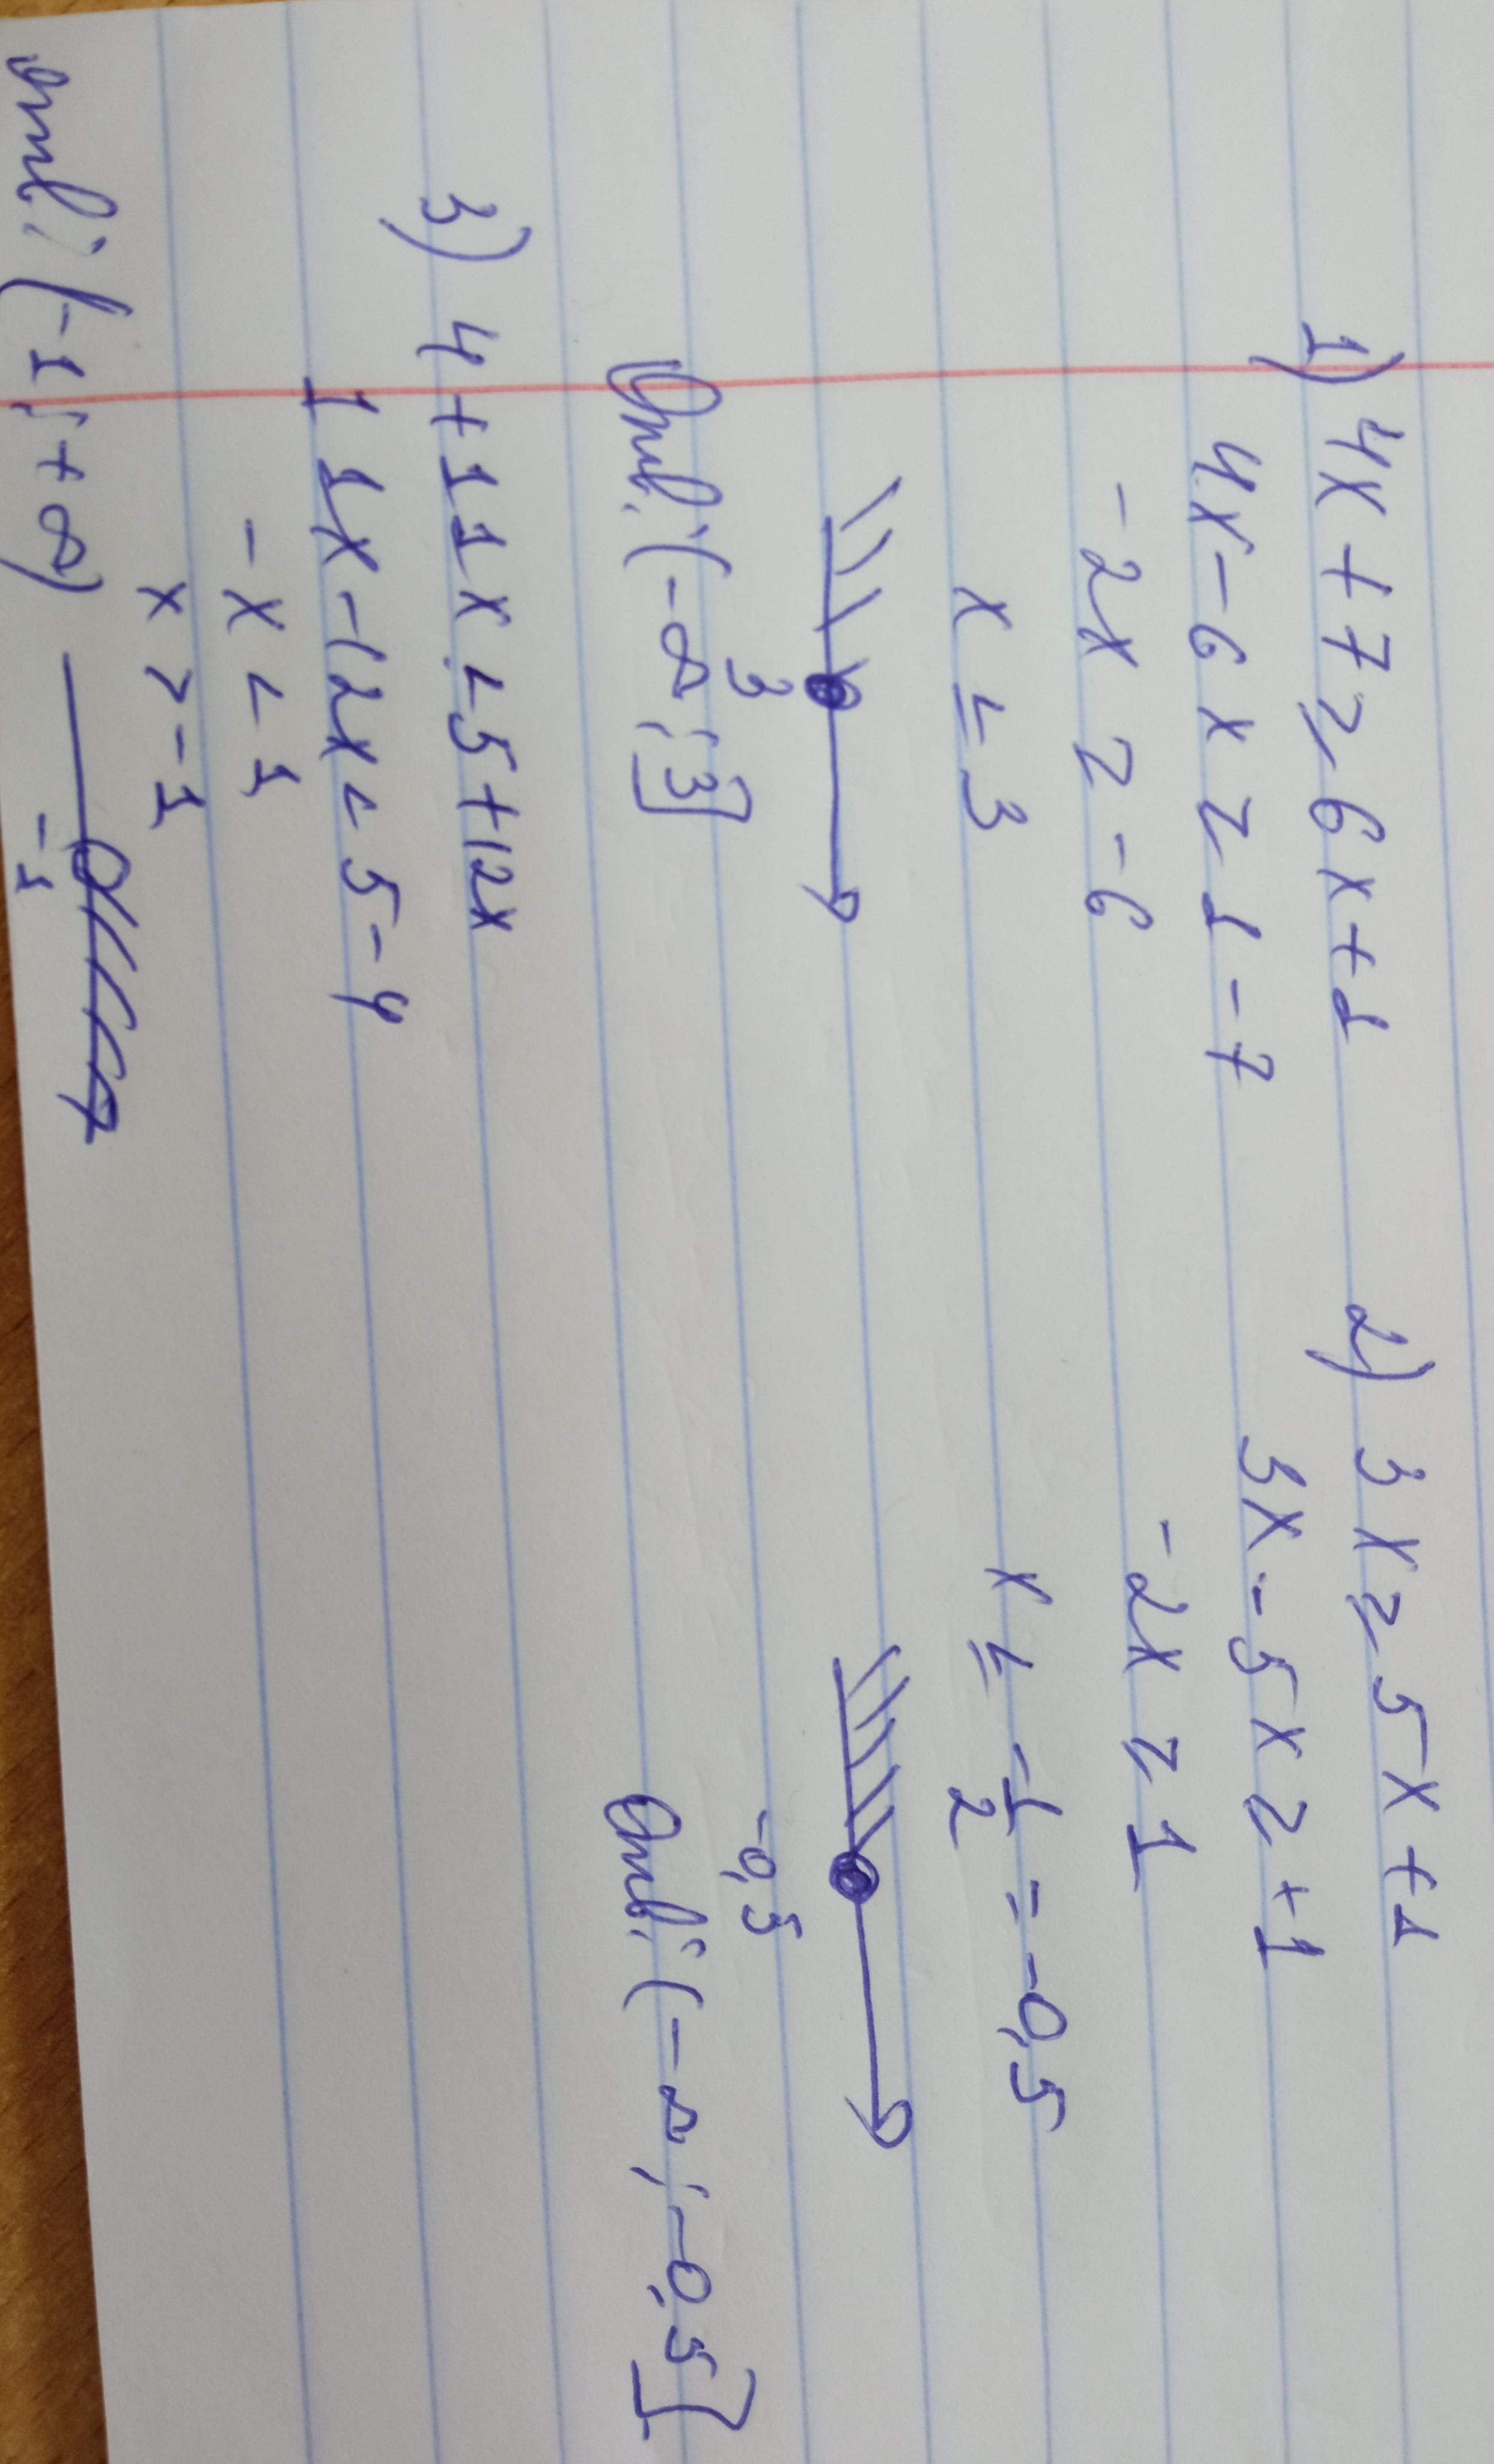 1) 4x + 7 ≥ 6x + 1
4x - 6x ≥ 1 - 7
-2x ≥ -6
x ≤ 3
3
Отв.: (-∞; 3]
2) 3x ≥ 5x + 1
3x - 5x ≥ +1
-2x ≥ 1
x ≤ -1/2 = -0,5
-0,5
Отв.: (-∞; -0,5]
3) 4 + 11x < 5 + 12x
11x - 12x < 5 - 4
-x < 1
x > -1
-1
Отв.: (-1; +∞)